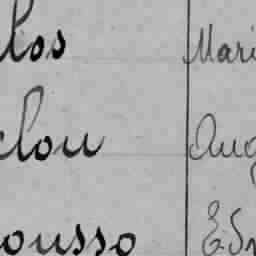 los Mari
clou Aug
ousso Edm